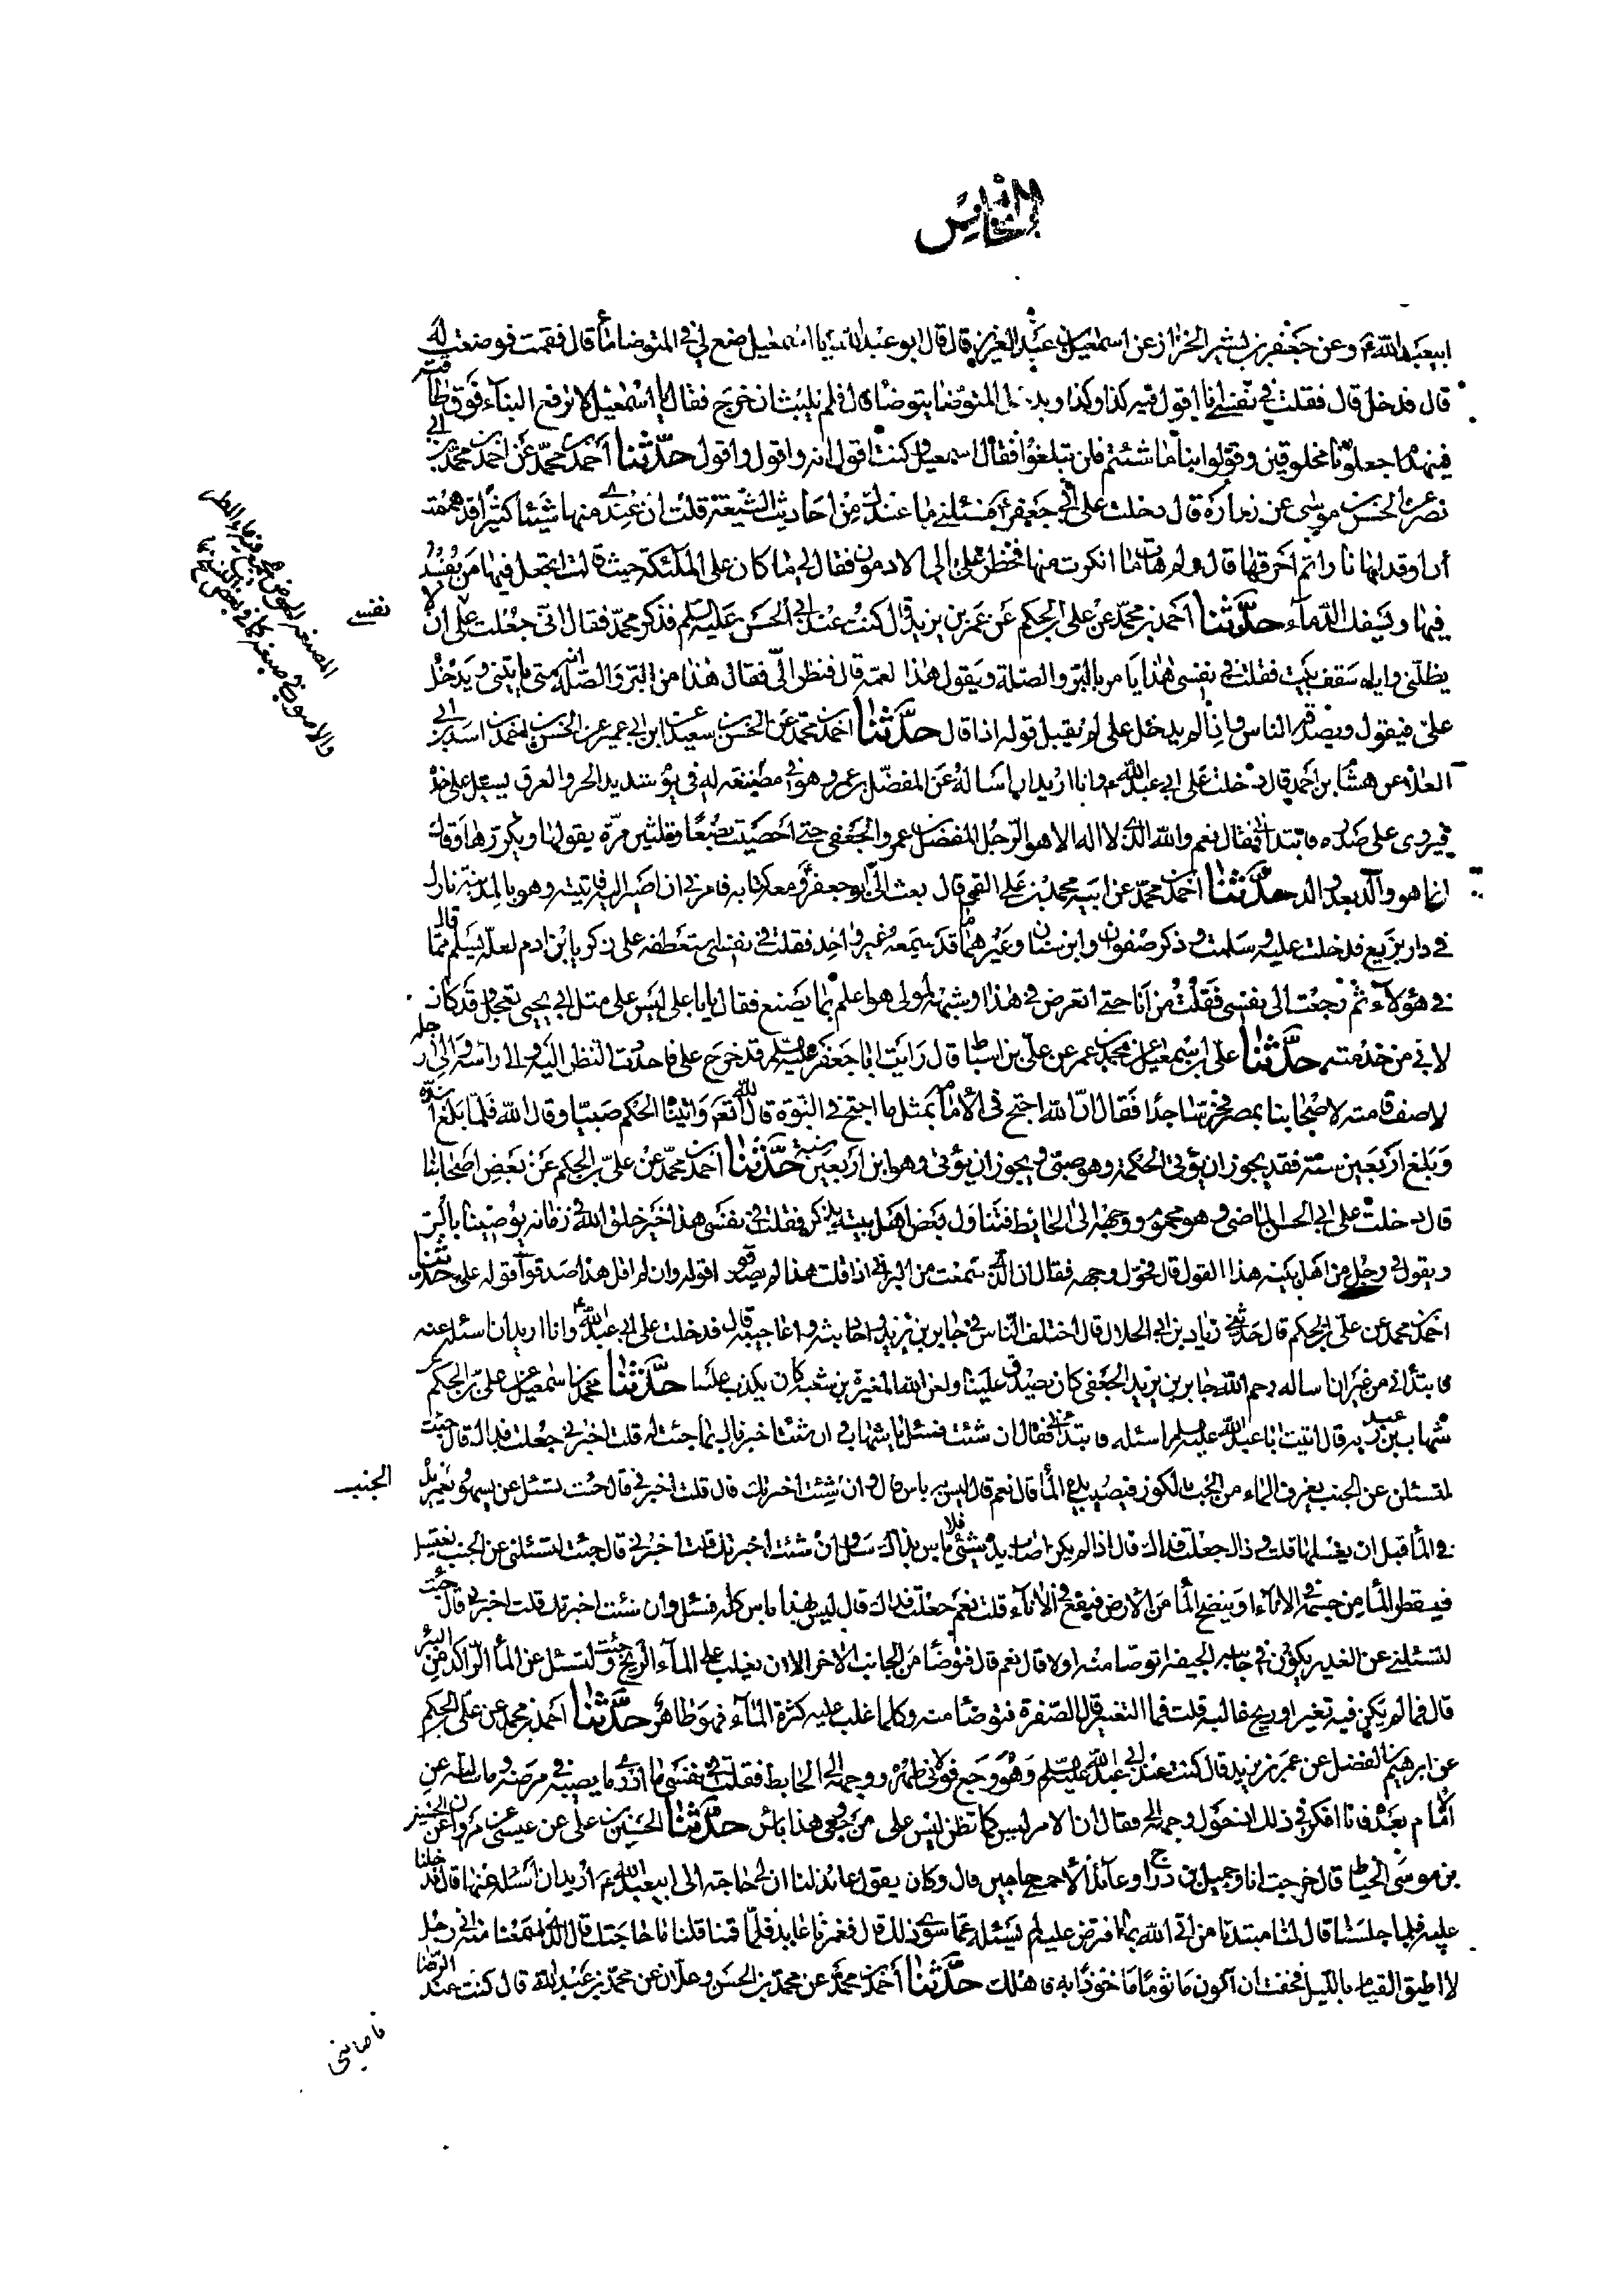 الخامس
ابيعبد الله ع وعن جعفر بن بشير الخزاز عن اسمعيل بن عبد العزيز قال قال ابو عبد الله يا اسمعيل ضع لي في المتوضا ماء قال فقمت فوضعت له
قال فدخل قال فقلت في نفسي انا اقول فيه كذا وكذا ويدخل المتوضا يتوضا قال فلم يلبث ان خرج فقال يا اسمعيل لا ترفع البناء فوق طاقته
فينهدم اجعلونا مخلوقين وقولوا بنا ما شئتم فلن تبلغوا فقال اسمعيل وكنت اقول انه واقول واقول حدثنا احمد بن محمد عن احمد بن محمد بن ابي
نصر عن الحسن بن موسى عن زرارة قال دخلت على ابي جعفر ع فسئلني ما عندك من احاديث الشيعة قلت ان عندي منها شيئا كثيرا قد هممت
ان اوقد لها نارا ثم احرقها قال ولم هات ما انكرت منها فخطر على بالي الادمون فقال لي ما كان على الملئكة حيث قالت اتجعل فيها من يفسد
فيها ويسفك الدماء حدثنا احمد بن محمد عن علي بن الحكم عن عمر بن يزيد قال كنت عند ابي الحسن عليه السلم فذكر محمد فقال اني جعلت علي ان لا
يظلني واياه سقف بيت فقلت في نفسي هذا يامر بالبر والصلة ويقول هذا لعمه قال فنظر الي فقال هذا من البر والصلة انه متى ياتيني ويدخل
علي فيقول ويصدقه الناس واذا لم يدخل علي لم يقبل قوله اذا قال حدثنا احمد بن محمد عن الحسن بن سعيد عن ابن ابي عمير عن الحسن بن اسد بن ابي
العلاء عن هشام بن احمد قال دخلت على ابي عبد الله ع وانا اريد ان اساله عن المفضل بن عمر وهو في مصنعة له في يوم شديد الحر والعرق يسيل على خده
فيجري على صدره فابتداني فقال نعم والله الذي لا اله الا هو الرجل المفضل بن عمرو الجعفي حتى احصيت بضعا وثلثين مرة يقولها ويكررها وقال
انما هو والد بعد والد حدثنا احمد بن محمد عن ابيه محمد بن علي القمي قال بعث الي ابو جعفر ع ومعه كتابه فامرني ان اصير اليه فاتيته وهو بالمدينة نازل
في دار بزيع فدخلت عليه وسلمت وذكر صفوان وابن سنان وغيرهما ما قد سمعه غير واحد فقلت في نفسي استعطفه على زكريا بن ادم لعله يسلم مما قال
في هؤلاء ثم رجعت الى نفسي فقلت من انا حتى اتعرض في هذا وشبهه لمولى هو اعلم بما يصنع فقال لي يا با علي ليس على مثل ابي يحيى تعجل وقد كان
لابي من خدمته حدثنا علي بن اسمعيل عن محمد بن عمر عن علي بن اسباط قال رايت ابا جعفر عليه السلم قد خرج علي فاحددت النظر اليه والى راسه والى رجله
لاصف قامته لاصحابنا بمصر فخر ساجدا فقال ان الله احتج في الامامة بمثل ما احتج في النبوة قال الله تع واتيناه الحكم صبيا وقال الله فلما بلغ اشده
وبلغ اربعين سنة فقد يجوز ان يؤتى الحكمة وهو صبي ويجوز ان يؤتى وهو ابن اربعين سنة حدثنا احمد بن محمد عن علي بن الحكم عن بعض اصحابنا
قال دخلت على ابي الحسن الماضي وهو محموم ووجهه الى الحائط فتناول بعض اهل بيته يذكره فقلت في نفسي هذا خير خلق الله في زمانه يوصينا بالبر
ويقول في رجل من اهل بيته هذا القول قال فحول وجهه فقال ان الذي سمعت من البر اني اذا قلت هذا لم يصدقوا قوله وان لم اقل هذا صدقوا قوله علي حدثنا
احمد بن محمد عن علي بن الحكم قال حدثني زياد بن ابي الحلال قال اختلف الناس في جابر بن يزيد واحاديثه واعاجيبه قال فدخلت على ابي عبد الله ع وانا اريد ان اسئله عنه
فابتداني من غير ان اساله رحم الله جابر بن يزيد الجعفي كان يصدق علينا ولعن الله المغيرة بن شعبة كان يكذب علينا حدثنا محمد بن اسمعيل عن علي بن الحكم عن
شهاب بن عبد ربه قال اتيت ابا عبد الله عليه السلم اسئله فابتداني فقال ان شئت فسئل يا شهاب وان شئت اخبرناك بما جئت له قلت اخبرني جعلت فداك قال جئت
لتسئلن عن الجنب يغرف الماء من الحب بالكوز فيصيب يده الماء قال نعم قال ليس به باس قال وان شئت اخبرتك قال قلت اخبرني قال جئت تسئل عن يسهو ويغمز يده
في الماء قبل ان يغسلها قلت وذاك جعلت فداك قال اذا لم يكن اصاب يده شيء فلا باس بذاك سل وان شئت اخبرتك قلت اخبرني قال جئت لتسئلني عن الجنب يغتسل
فيقطر الماء من جسمه في الاناء او ينضح الماء من الارض فيقع في الاناء قلت نعم جعلت فداك قال ليس بهذا باس كله فسئل وان شئت اخبرتك قلت اخبرني قال جئت
لتسئلني عن الغدير يكون في جانبه الجيفة اتوضا منه او لا قال نعم قال فتوضا من الجانب الاخر الا ان يغلب على الماء الريح وجئت لتسئل عن الماء الراكد من البئر
قال فما لم يكن فيه تغير او ريح غالبة قلت فما التغير قال الصفرة فتوضا منه وكلما غلب عليه كثرة الماء فهو طاهر حدثنا احمد بن محمد عن علي بن الحكم
عن ابرهيم بن الفضل عن عمر بن يزيد قال كنت عند ابي عبد الله عليه السلم وهو وجع فولاني ظهره ووجهه الى الحايط فقلت في نفسي ما ادري ما يصيبه في مرضه وما سالته عن
الامام بعده فانا افكر في ذلك اذ حول وجهه الي فقال ان الامر ليس كما تظن ليس علي من وجعي هذا باس حدثنا الحسين بن علي عن عيسى بن مروان عن الحسين
بن موسى الحناط قال خرجت انا وجميل بن دراج وعائذ الاحمسي حاجين قال وكان يقول عائذ لنا ان لي حاجة الى ابيعبد الله ع اريد ان اسئله عنها قال فدخلنا
عليه فلما جلسنا قال لنا مبتدئا من اتى الله بما افترض عليه لم يسئله عما سوى ذلك قال فغمزنا عايذ فلما قمنا قلنا ما حاجتك قال الذي سمعنا منه اني رجل
لا اطيق القيام بالليل فخفت ان اكون ماثوما ماخوذا به فاهلك حدثنا احمد بن محمد عن محمد بن الحسن وعلان عن محمد بن عبد الله قال كنت عند الرضا
نفسي
الجنب
فاصابني